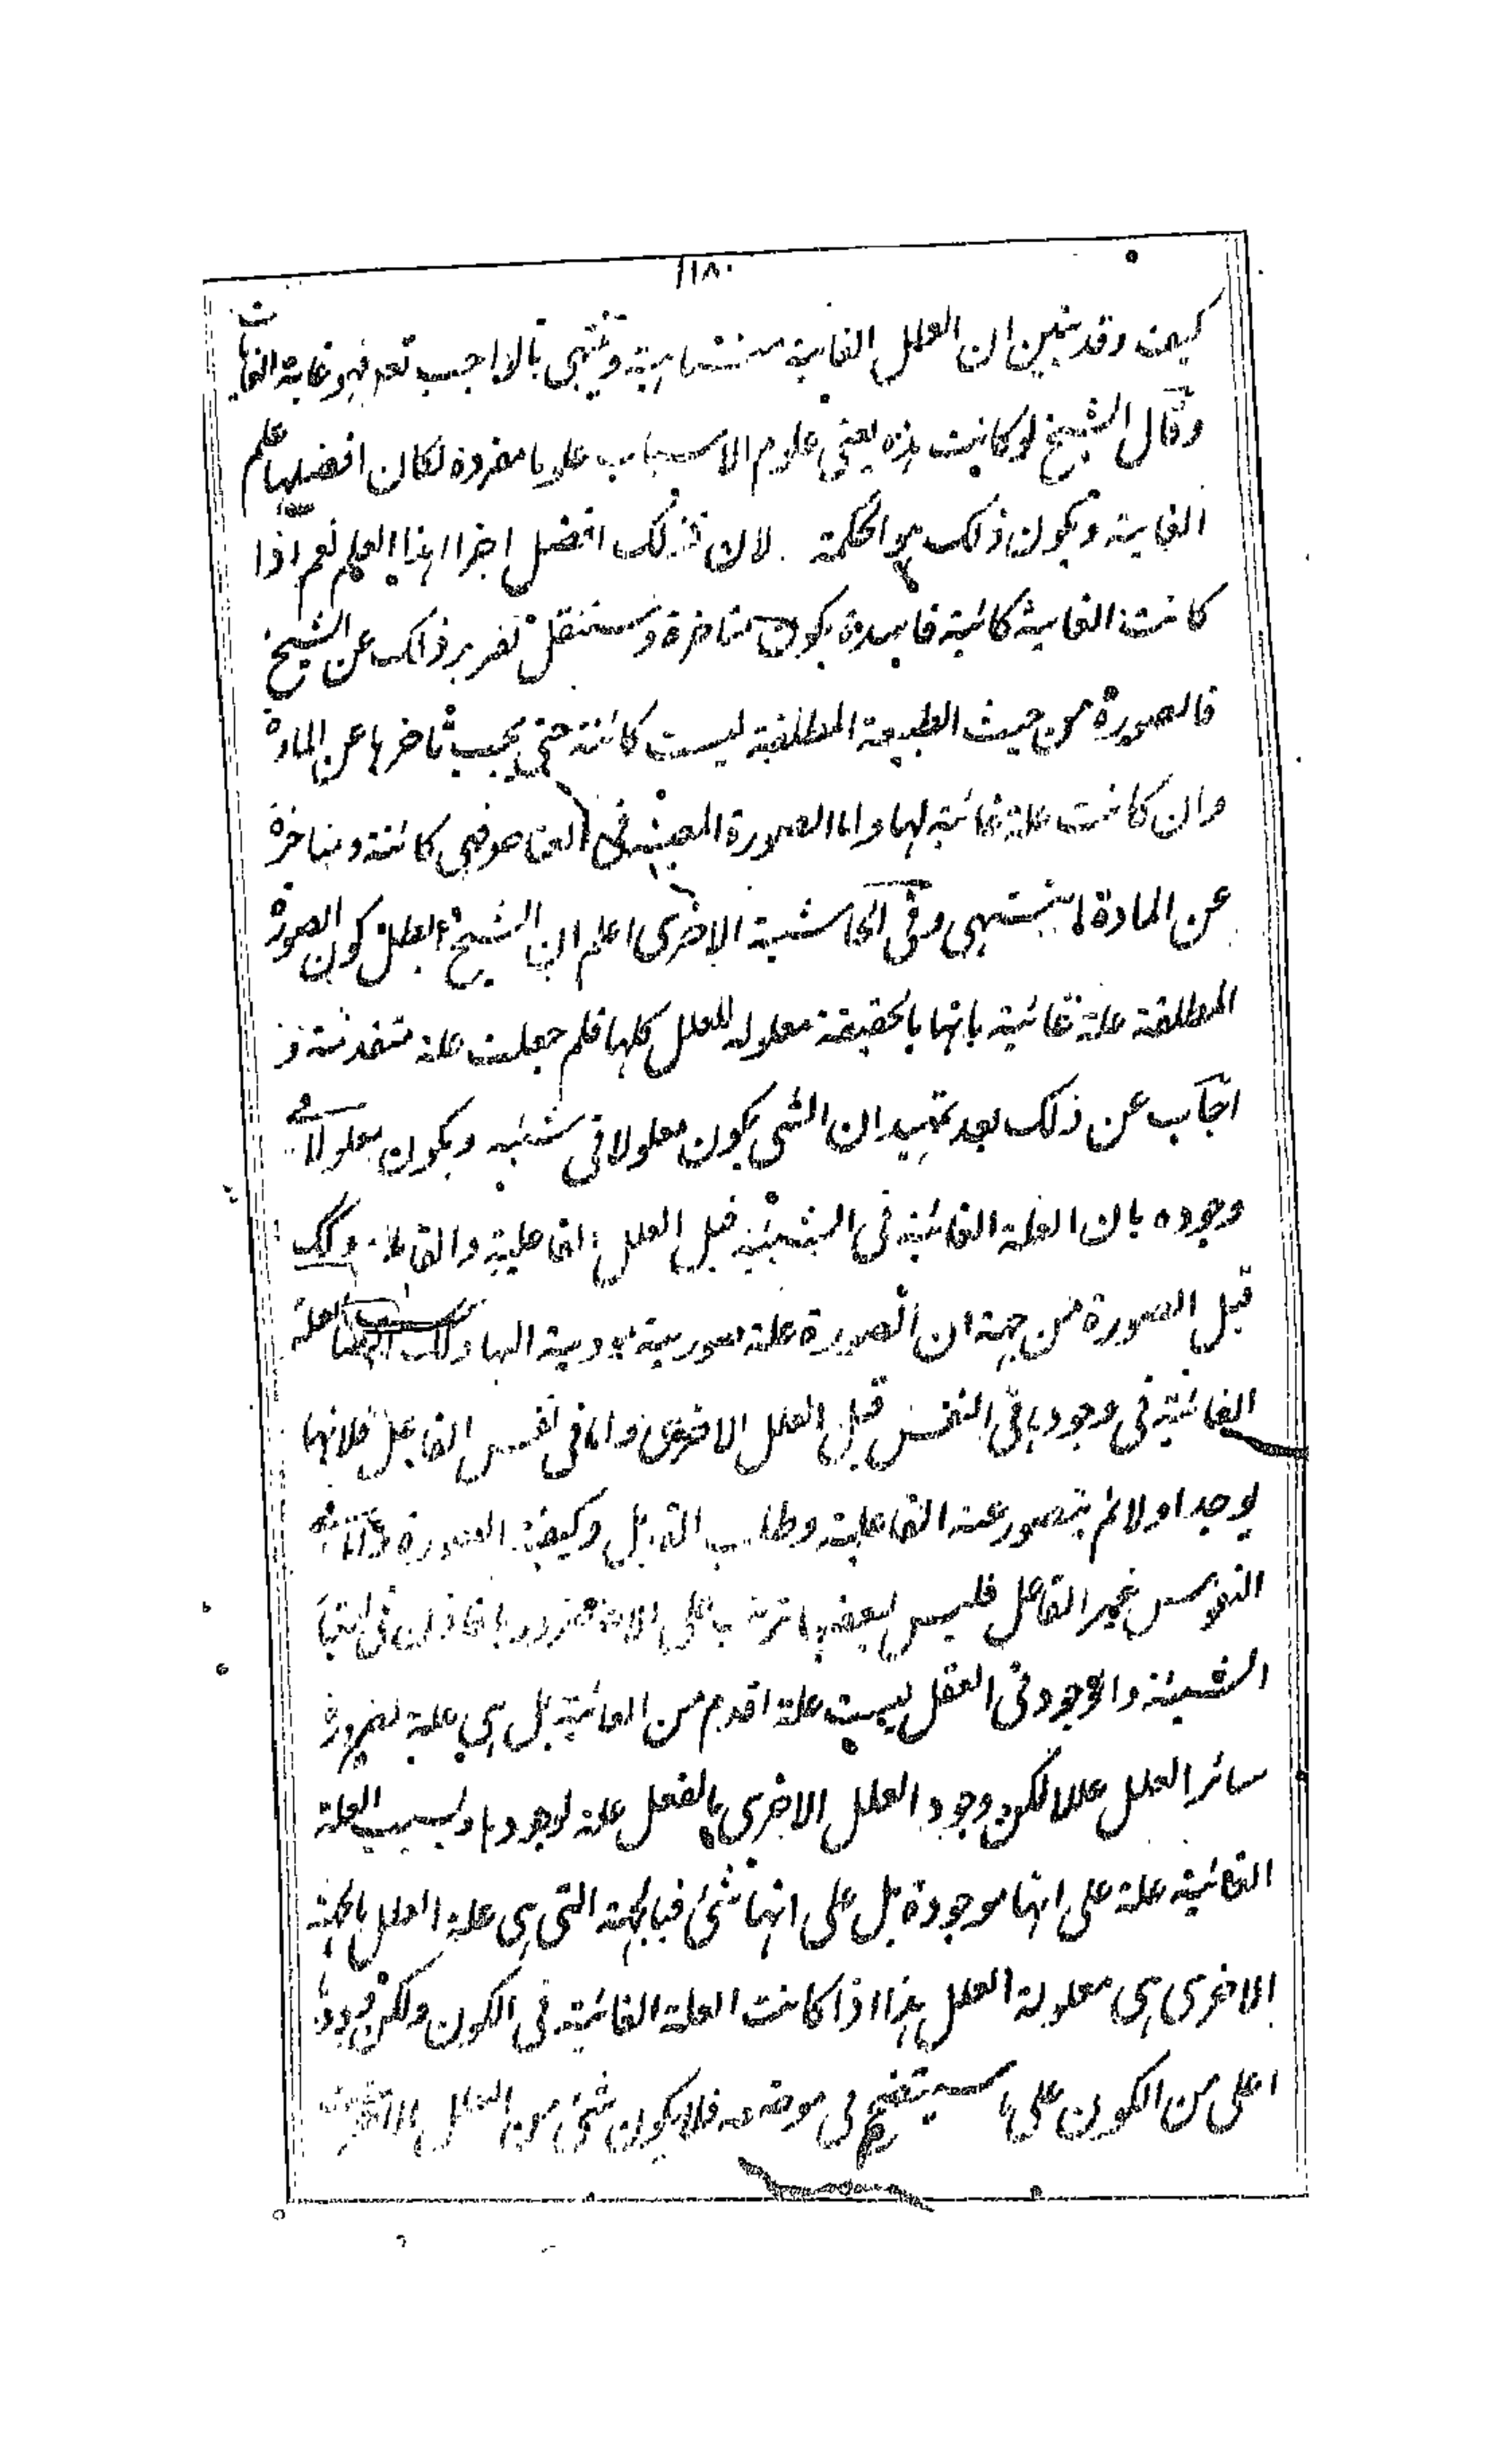 ١١٨٠
كيف وقد تبين ان العلل الغاية متناهية وتنتهي بالواجب تعه فهو غاية الغايات
وقال الشيخ لو كانت هذه يعنى علوم الاسباب علوما مفردة لكان افضلها علم
الغاية ويكون ذلك هو الحكمة لان فذلك افضل اجزا هذا العلم نعم اذا
كانت الغاية كائنة فاسدة يكون متاخرة وسننقل تقرير ذلك عن الشيخ
فالصورة من حيث الطبيعة المطلقة ليست كائنة حتى يجب تاخرها عن المادة
وان كانت علة غائية لها واما الصورة المعينة فى العناصر فهى كائنة ومتاخرة
عن المادة انتهى وفى الحاشية الاخرى اعلم ان الشيخ ابطل كون الصورة
المطلقة علة غائية بانها بالحقيقة معلولة للعلل كلها فلم جعلت علة متقدمة و
اجاب عن ذلك بعد تمهيد ان الشى يكون معلولا فى شيئيه ويكون معلولا فى
وجوده بان العلة الغائية فى الشيئية قبل العلل الفاعلية والقابلة وكذلك
قبل الصورة من جهة ان الصورة علة صورية مودية اليها وكذلك ايضا العلة
الغائية فى وجودها فى النفس قبل العلل الاخرى واما فى نفس الفاعل فلانها
يوجد اولا ثم يتصور عنه الفاعلية وطلب القابل وكيفية الصورة واما فى
النفوس غير الفاعل فليس لبعضها ترتب على الاخر ضرورة فاذن فى اعتبار
الشيئية والوجود فى العقل ليست علة اقدم من الغائية بل هى علة لصيرورة
سائر العلل عللا لكن وجود العلل الاخرى بالفعل علة لوجودها وليست العلة
الغائية علة على انها موجودة بل على انها شئ فبالجهة التى هى علة العلل بالجهة
الاخرى هى معلولة العلل هذا اذا كانت العلة الغائية فى الكون ولكن وجودها
اعلى من الكون على ما سيتضح فى موضعه فلا يكون شئ من العلل الاخرى